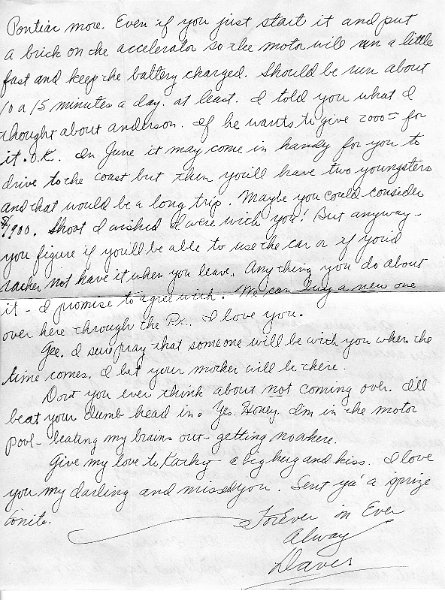 Pontiac more. Even if you just start it and put
a brick on the accelerator so the motor will run a little
fast and keep the battery charged. Should be run about
10 or 15 minutes a day. at least. I told you what I
thought about anderson. If he wants to give 2000= for
it. O.K. In June it may come in handy for you to
drive to the coast but then you'll have two youngsters
and that would be a long trip. Maybe you could consider
$1900. Shoot I wished I were with you! But anyway -
you figure if you'll be able to use the car or if you'd
rather not have it when you leave. Any thing you do about
it - I promise to agree with. We can buy a new one
over here through the Px. I love you.
Gee. I sure pray that someone will be with you when the
time comes. I bet your mother will be there.
Don't you ever think about not coming over. I'll
beat your dumb head in. Yes. Honey. I'm in the motor
pool - beating my brains out - getting nowhere.
Give my love to Kathy - a big hug and kiss. I love
you my darling and missed you. Sent ya' a sprize
tonite.
ForEver in Ever
Alway
Daver